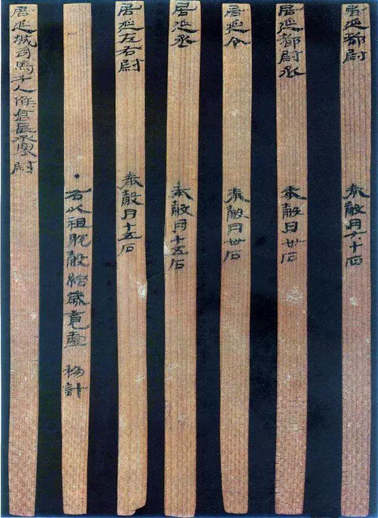 居延都尉　奉穀月六十石
居延都尉丞　奉穀月卅石
居延令　奉穀月卅石
居延丞　奉穀月十五石
居延左右尉　奉穀月十五石
・右以祖脫穀給歲竟壹　移計
居延城司馬千人候倉長丞塞尉